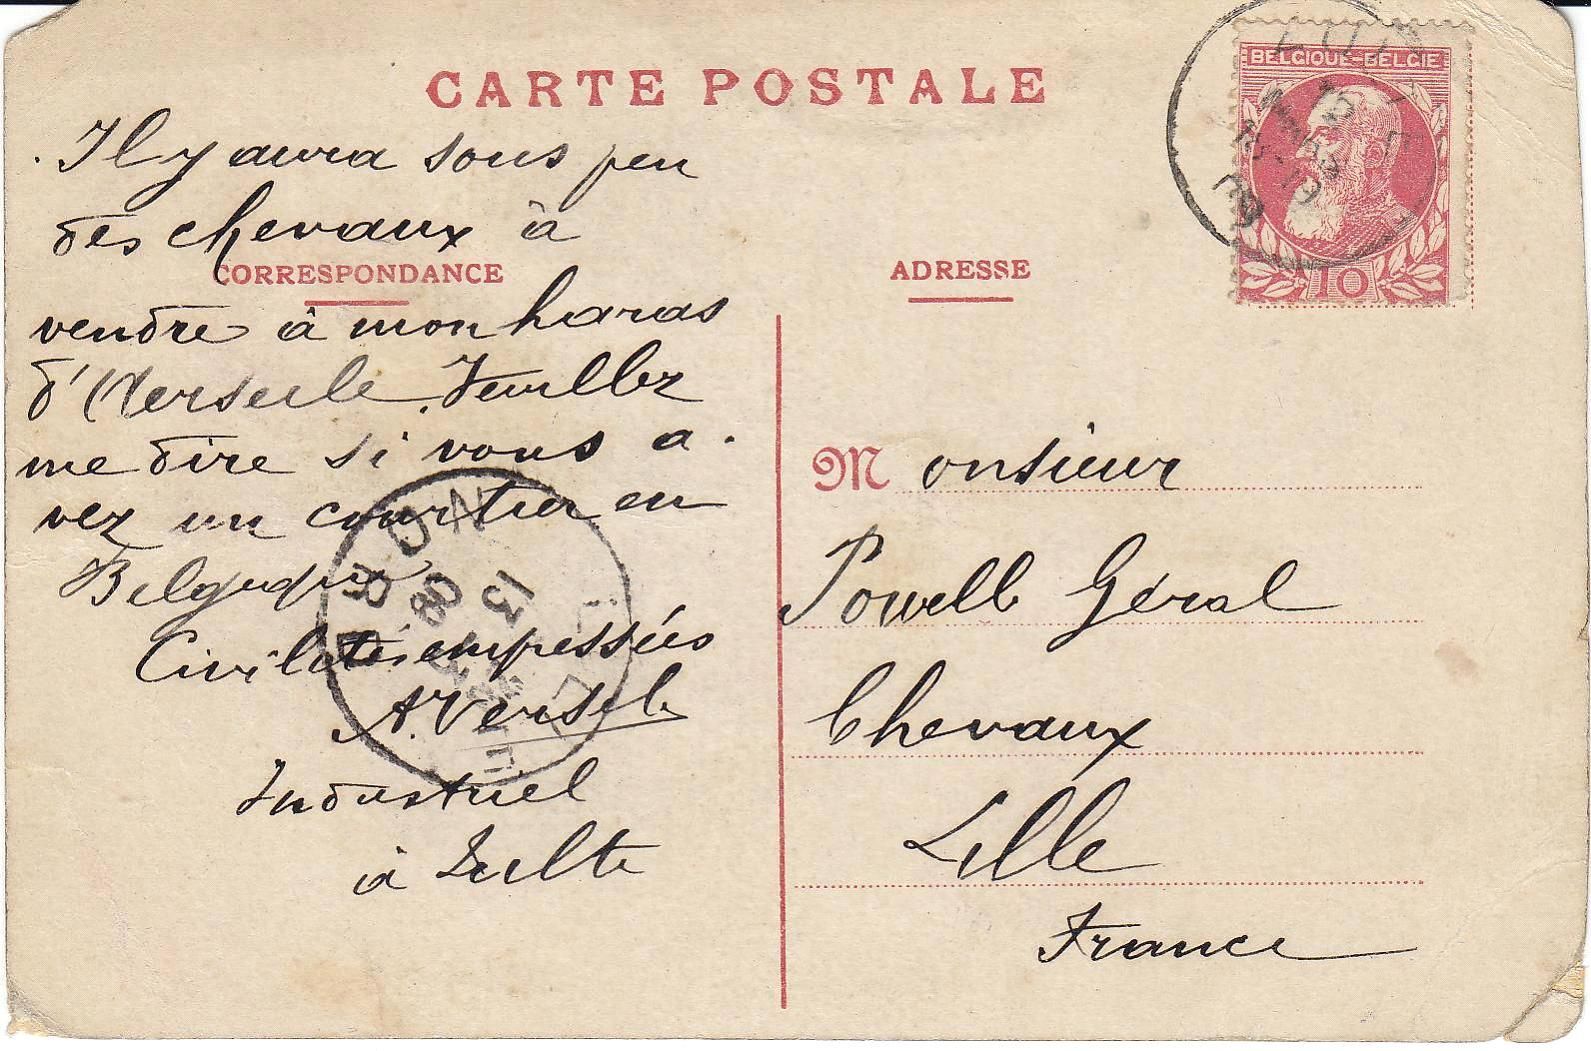 CARTE POSTALE
BELGIQUE-BELGIE
10
CORRESPONDANCE
Il y aura sous peu
des chevaux à
vendre à mon haras
d'Aerseele. Veuillez
me dire si vous a.
vez un courtier en
Belgique
Civilités empressées
A. Versele
Industriel
à Zulte
ADRESSE
Monsieur
Powell Géral
Chevaux
Lille
France
13